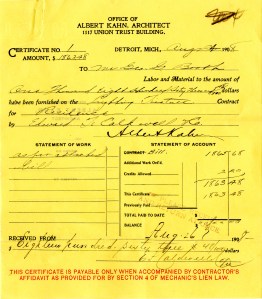 OFFICE OF
ALBERT KAHN, ARCHITECT
1117 UNION TRUST BUILDING.
CERTIFICATE No. 1 DETROIT, MICH.,
AMOUNT, $ 1863.48
To Mr. Geo. G. Booth
Labor and Material to the amount
One Thousand Eight Hundred Sixty Three Dollars
have been furnished on the Lighting Fixture Contract
for Residence
by Edward F. Caldwell & Co.
Albert Kahn
STATEMENT OF WORK STATEMENT OF ACCOUNT
as per attached CONTRACT 1865.68
Bill Additional Work Ord's
Credits Allowed 2.20
1863.48
This Certificate 1863.48
Previously Paid
TOTAL PAID TO DATE
BALANCE
Aug. 26 190
RECEIVED FROM
Eighteen hundred sixty three & 48/100 Dollars
THIS CERTIFICATE IS PAYABLE ONLY WHEN ACCOMPANIED BY CONTRACTOR'S
AFFIDAVIT AS PROVIDED FOR BY SECTION 4 OF MECHANIC'S LIEN LAW.